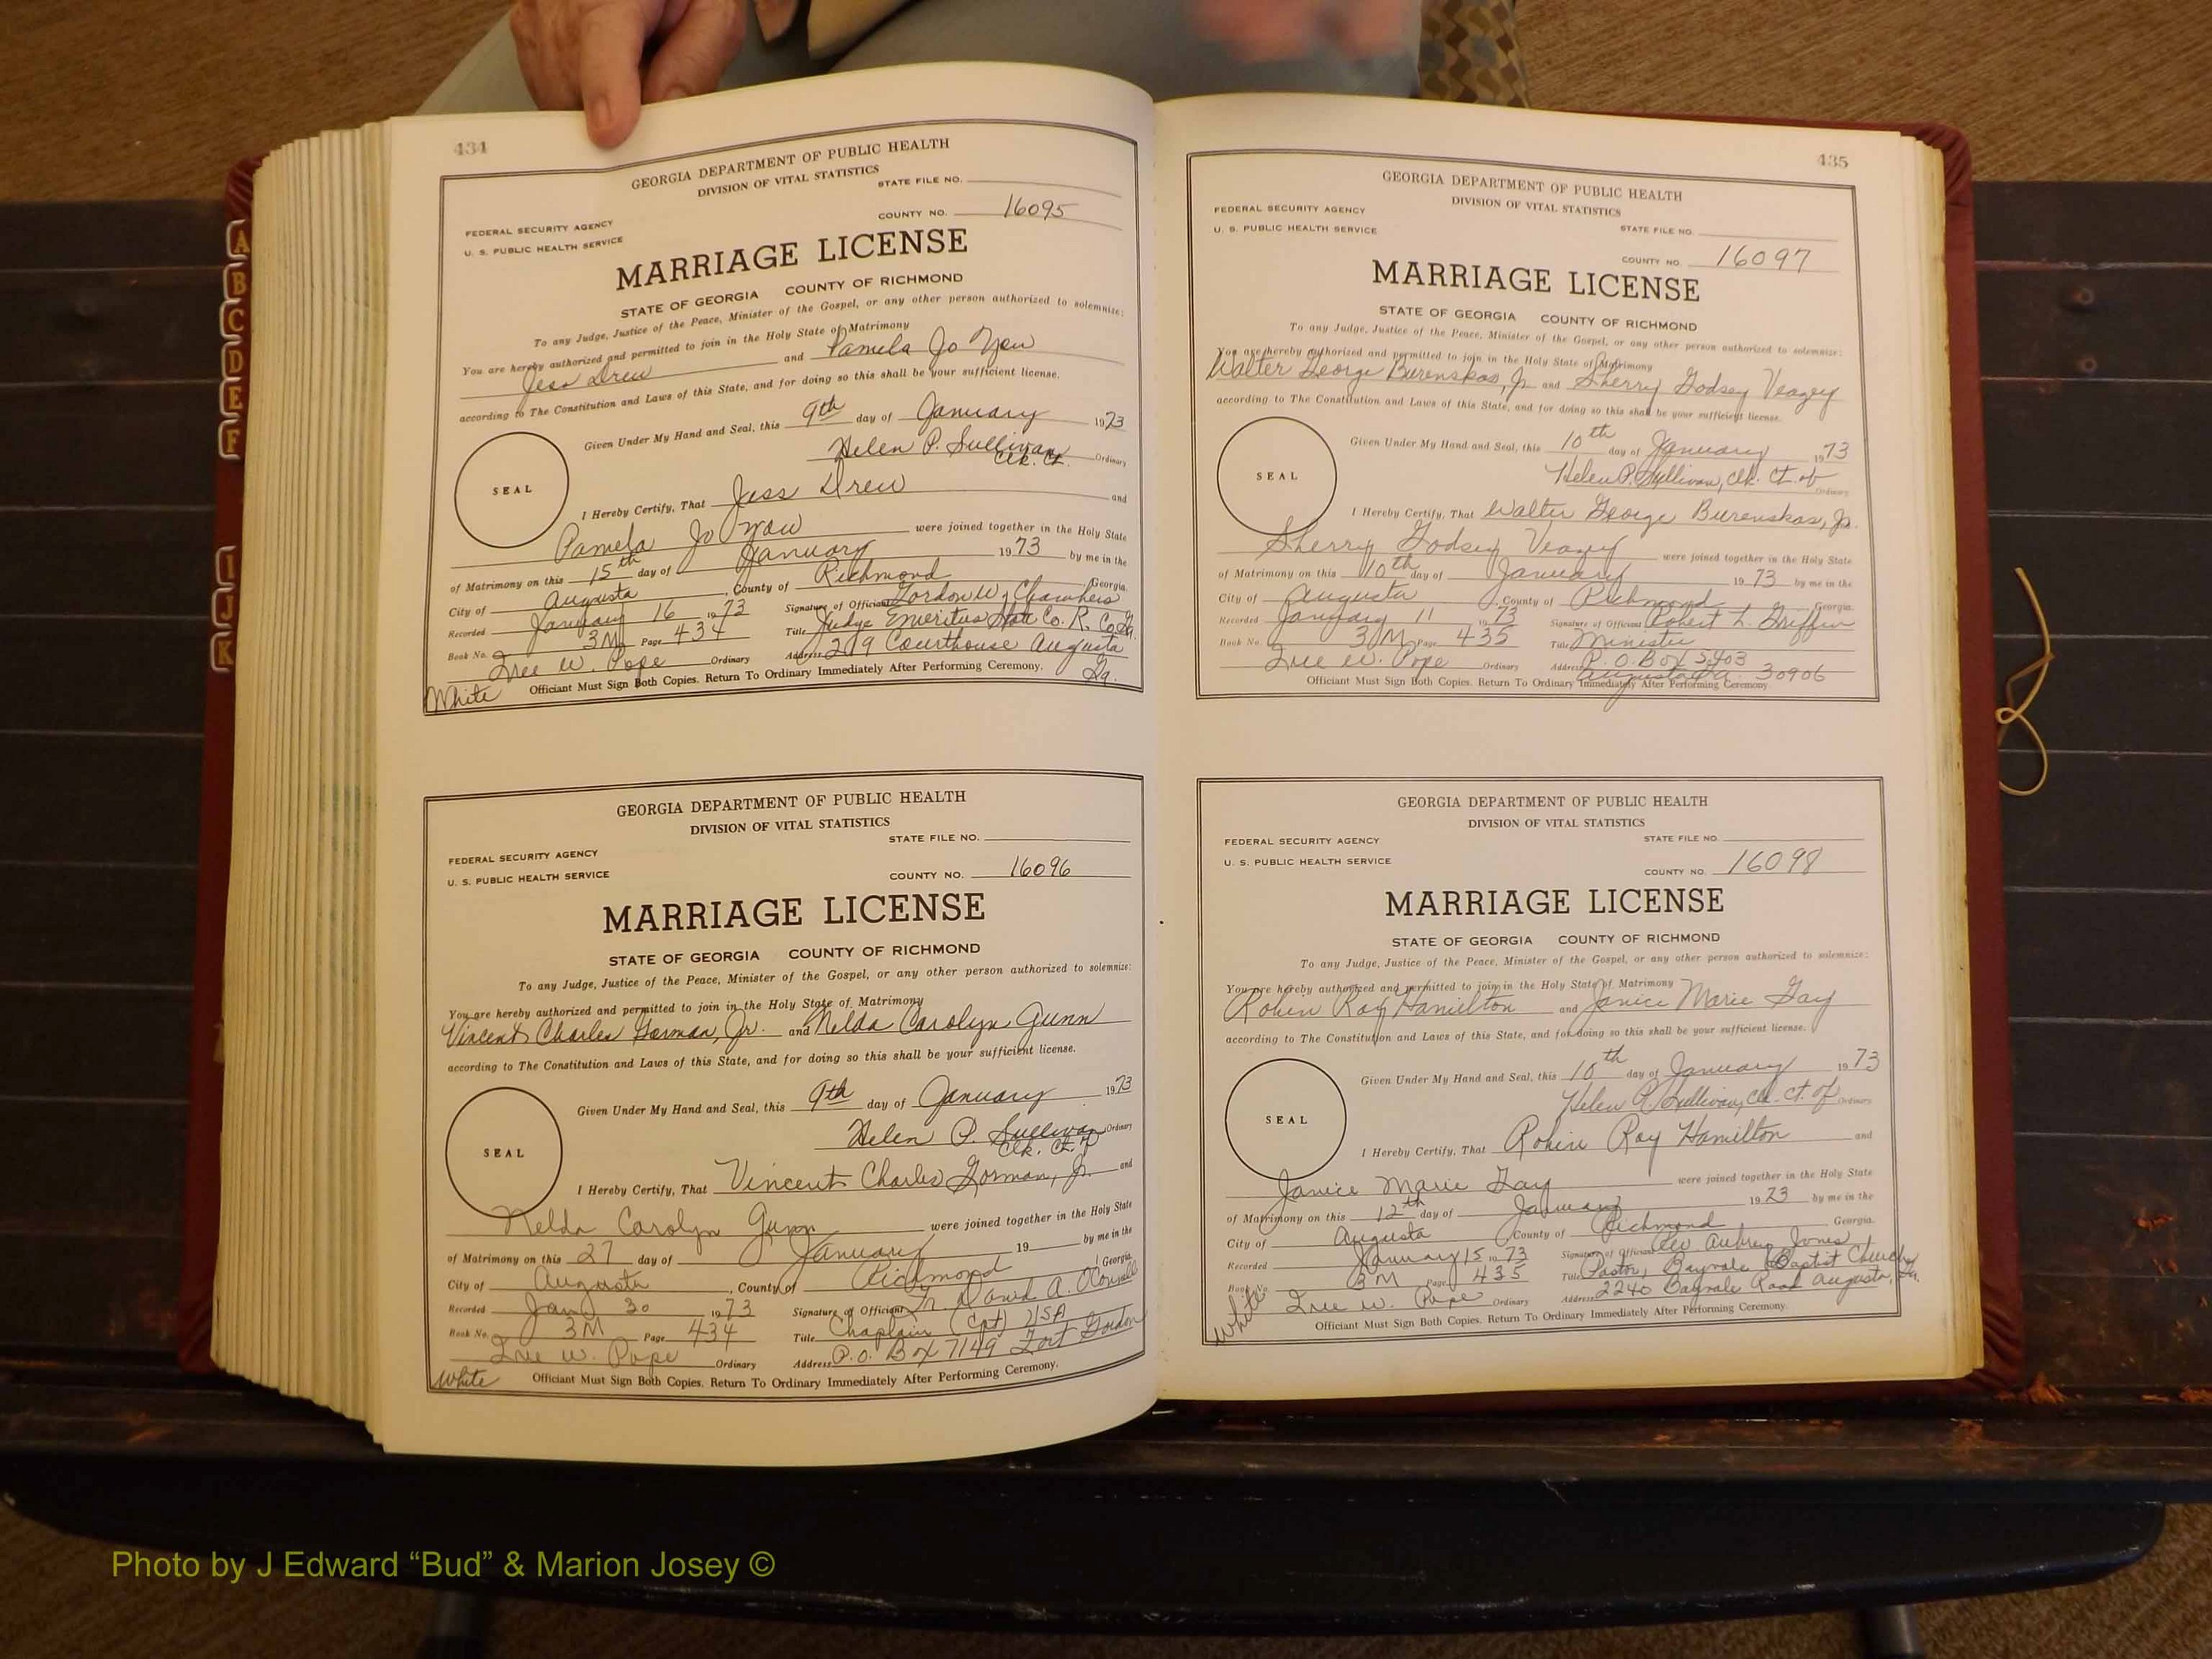 434
GEORGIA DEPARTMENT OF PUBLIC HEALTH
DIVISION OF VITAL STATISTICS
STATE FILE NO.
COUNTY NO. 16095
FEDERAL SECURITY AGENCY
U. S. PUBLIC HEALTH SERVICE
MARRIAGE LICENSE
STATE OF GEORGIA COUNTY OF RICHMOND
To any Judge, Justice of the Peace, Minister of the Gospel, or any other person authorized to solemnize:
You are hereby authorized and permitted to join in the Holy State of Matrimony
Jess Drew and Pamela Jo
according to The Constitution and Laws of this State, and for doing so this shall be your sufficient license.
Given Under My Hand and Seal, this 9th day of January 1973
Helen P. Sullivan Ordinary
Clk. Ct.
SEAL
I Hereby Certify, That Jess Drew and
Pamela Jo were joined together in the Holy State
of Matrimony on this 15th day of January 1973 by me in the
City of Augusta, County of Richmond Georgia.
Recorded January 16 1973 Signature of Official Gordon W. Chambers
Book No. 3M Page 434 Title Judge Emeritus State Co. R. Co. Ga.
Inee W. Pope Ordinary Address 209 Courthouse Augusta
Ga.
White Officiant Must Sign Both Copies. Return To Ordinary Immediately After Performing Ceremony.
GEORGIA DEPARTMENT OF PUBLIC HEALTH
DIVISION OF VITAL STATISTICS
STATE FILE NO.
FEDERAL SECURITY AGENCY
U. S. PUBLIC HEALTH SERVICE COUNTY NO. 16096
MARRIAGE LICENSE
STATE OF GEORGIA COUNTY OF RICHMOND
To any Judge, Justice of the Peace, Minister of the Gospel, or any other person authorized to solemnize:
You are hereby authorized and permitted to join in the Holy State of Matrimony
Vincent Charles Gorman, Jr. and Nelda Carolyn Gunn
according to The Constitution and Laws of this State, and for doing so this shall be your sufficient license.
Given Under My Hand and Seal, this 9th day of January 1973
Helen P. Sullivan Ordinary
Clk. Ct. of
SEAL
I Hereby Certify, That Vincent Charles Gorman, Jr. and
Nelda Carolyn Gunn were joined together in the Holy State
of Matrimony on this 27 day of January 19 by me in the
City of Augusta, County of Richmond Georgia.
Recorded Jan 30 1973 Signature of Official David A. O'Connell
Book No. 3M Page 434 Title Chaplain (Cpt) USA
Inee W. Pope Ordinary Address P.O. Box 7149 Fort Gordon
White Officiant Must Sign Both Copies. Return To Ordinary Immediately After Performing Ceremony.
435
GEORGIA DEPARTMENT OF PUBLIC HEALTH
DIVISION OF VITAL STATISTICS
FEDERAL SECURITY AGENCY
U. S. PUBLIC HEALTH SERVICE STATE FILE NO.
COUNTY NO. 16097
MARRIAGE LICENSE
STATE OF GEORGIA COUNTY OF RICHMOND
To any Judge, Justice of the Peace, Minister of the Gospel, or any other person authorized to solemnize:
You are hereby authorized and permitted to join in the Holy State of Matrimony
Walter George Burenskas, Jr. and Sherry Godsey Veazey
according to The Constitution and Laws of this State, and for doing so this shall be your sufficient license.
Given Under My Hand and Seal, this 10th day of January 1973
Helen P. Sullivan, Clk. Ct. of
Ordinary
SEAL
I Hereby Certify, That Walter George Burenskas, Jr.
Sherry Godsey Veazey were joined together in the Holy State
of Matrimony on this 10th day of January 1973 by me in the
City of Augusta, County of Richmond Georgia.
Recorded January 11 1973 Signature of Official Robert L. Griffin
Book No. 3M Page 435 Title Minister
Inee W. Pope Ordinary Address P.O. Box 5403
Augusta Ga. 30906
Officiant Must Sign Both Copies. Return To Ordinary Immediately After Performing Ceremony
GEORGIA DEPARTMENT OF PUBLIC HEALTH
DIVISION OF VITAL STATISTICS
FEDERAL SECURITY AGENCY STATE FILE NO.
U. S. PUBLIC HEALTH SERVICE COUNTY NO. 16098
MARRIAGE LICENSE
STATE OF GEORGIA COUNTY OF RICHMOND
To any Judge, Justice of the Peace, Minister of the Gospel, or any other person authorized to solemnize:
You are hereby authorized and permitted to join in the Holy State of Matrimony
Robin Ray Hamilton and Janice Marie Gay
according to The Constitution and Laws of this State, and for doing so this shall be your sufficient license.
Given Under My Hand and Seal, this 10th day of January 1973
Helen P. Sullivan, Clk. Ct. of Ordinary
SEAL
I Hereby Certify, That Robin Ray Hamilton and
Janice Marie Gay were joined together in the Holy State
of Matrimony on this 12th day of January 1973 by me in the
City of Augusta County of Richmond Georgia.
Recorded January 15 1973 Signature of Official Rev. Aubrey Jones
Book No. 3M Page 435 Title Pastor, Bayvale Baptist Church
Inee W. Pope Ordinary Address 2240 Bayvale Road Augusta, Ga.
White Officiant Must Sign Both Copies. Return To Ordinary Immediately After Performing Ceremony.
A
B
C
D
E
F
I
J
K
Photo by J Edward “Bud” & Marion Josey ©